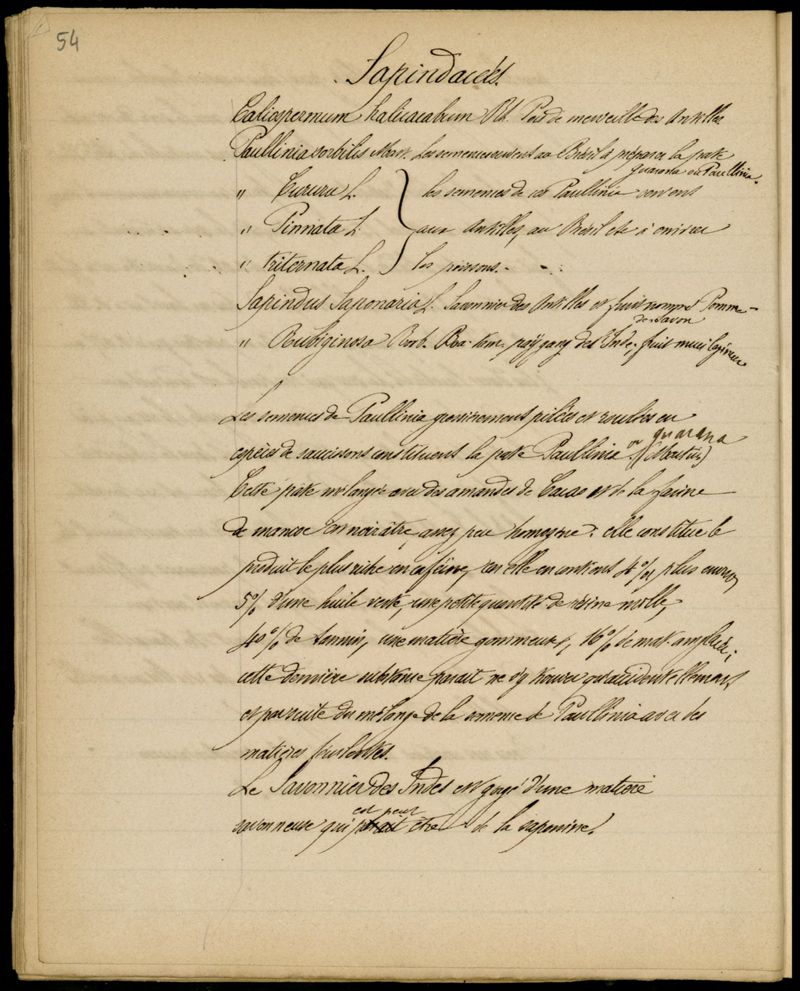 54
Sapindacées.
Cardiospermum halicacabum Rb. Pois de merveille des Antilles
Paullinia sorbilis Mart. Les semences servent au Brésil à préparer la pate
guarana ou Paullinia.
" Cururu L.
" Pinnata L.
" triternata L.
les semences de ces Paullinia servent
aux Antilles, au Brésil etc à enivrer
les poissons.
Sapindus Saponaria L. Savonnier des Antilles et fruit nommé Pomme
de Savon
" Rubiginosa Roxb. des Indes, fruit mucilagineux
Les semences de Paullinia grossièrement pilées et roulées en
espèces de saucissons constituent la pate Paullinia ou guarana
Cette pate mélangée avec des amandes de Cacao et de la farine
de manioc est noirâtre assez peu homogène : elle constitue le
produit le plus riche en caféine, car elle en contient 4% plus environ
5% d'une huile verte, une petite quantité de résine molle,
40% de tannin, une matière gommeuse, 16% de mat. amylacée ;
cette dernière substance parait ne s'y trouver qu'accidentellement
et par suite du mélange de la semence de Paullinia avec des
matières féculentes.
Le Savonnier des Indes est gorgé d'une matière
savonneuse qui est peut etre de la saponine.